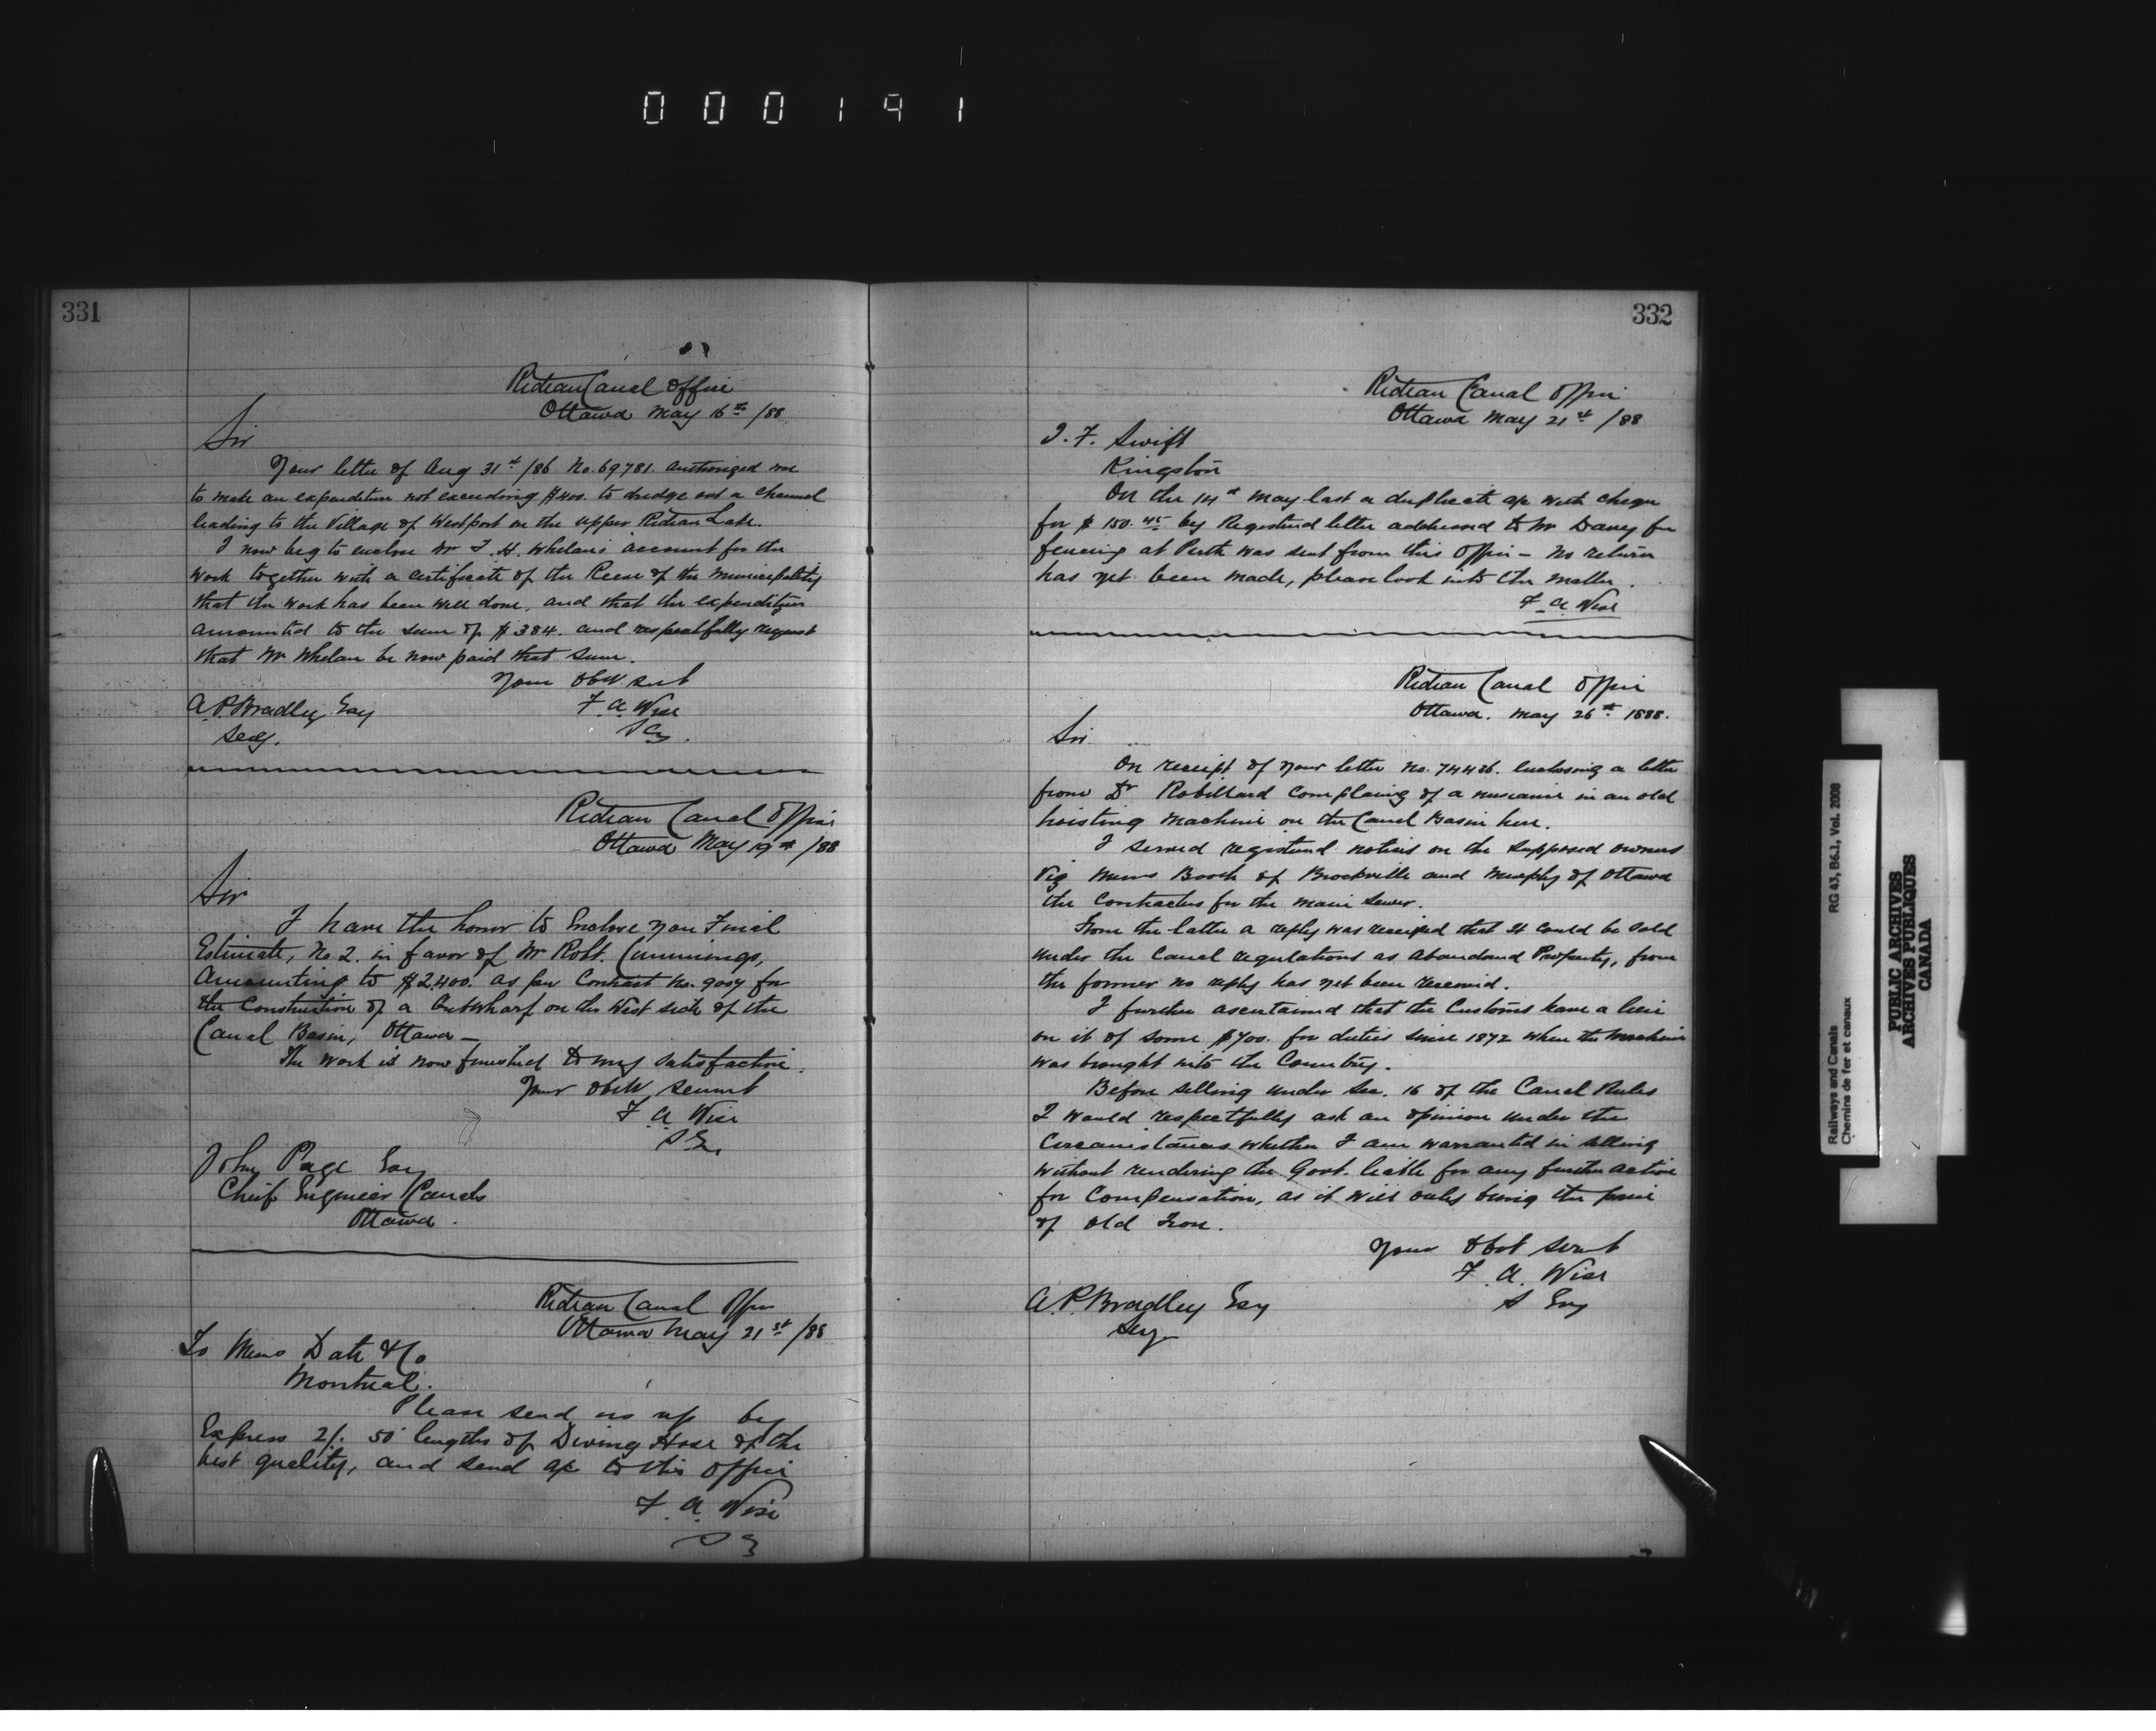 000191
331
Rideau Canal Office
Ottawa May 16th /88
Sir
Your letter of Aug 31st /86 No. 69781. authorized me
to make an expenditure not exceeding $400. to dredge out a channel
leading to the Village of Westport on the upper Rideau Lake.
I now beg to enclose Mr T. H. Whelan's account for the
work together with a certificate of the Reeve of the Municipality
that the work has been well done, and that the expenditure
amounted to the sum of $384. and respectfully request
that Mr Whelan be now paid that sum.
Your obdt servt
A. P. Bradley Esq
F. A. Wise
Secy.
Rideau Canal Office
Ottawa May 19th /88
Sir
I have the honor to Enclose you Final
Estimate, No. 2. in favor of Mr Robt. Cummings,
Amounting to $2,400. as per Contract No. 9007 for
the Construction of a Wharf on the West side of the
Canal Basin, Ottawa —
The work is now finished to my satisfaction.
Your obdt servant
F. A. Wise
S. E.
John Page Esq
Chief Engineer Canals
Ottawa.
Rideau Canal Office
Ottawa May 21st /88
To Messrs Date & Co
Montreal.
Please send us up by
Express 2/. 50' lengths of Diving Hose of the
best quality, and send a/c to this office
F. A. Wise
S E
332
Rideau Canal Office
Ottawa May 21st /88
J. F. Swift
Kingston
On the 14th May last a duplicate a/c with cheque
for $150.45 by Registered letter addressed to Mr Davey for
fencing at Perth was sent from this Office — no return
has yet been made, please look into the matter.
F. A. Wise
Rideau Canal Office
Ottawa. May 26th 1888.
Sir
On receipt of your letter No. 74486. enclosing a letter
from Dr Robillard complaing of a nusiance in an old
hoisting machine on the Canal Basin here.
I served registered notices on the supposed owners
Viz Messrs Booth of Brockville and Murphy of Ottawa
the Contractors for the main sewer.
From the latter a reply was received that it could be sold
under the Canal regulations as abandoned Property, from
the former no reply has yet been received.
I further ascertained that the Customs have a lien
on it of some $700. for duties since 1872 when the machine
was brought into the Country.
Before selling under Sec. 16 of the Canal Rules
I would respectfully ask an opinion under the
Circumstances whether I am warranted in selling
without rendering the Govt. liable for any further action
for Compensation, as it will only bring the price
of old Iron.
Your obdt servt
F. A. Wise
A. P. Bradley Esq
S Eng
Secy
Railways and Canals
Chemins de fer et canaux
RG 43, B6.1, Vol. 2008
PUBLIC ARCHIVES
ARCHIVES PUBLIQUES
CANADA